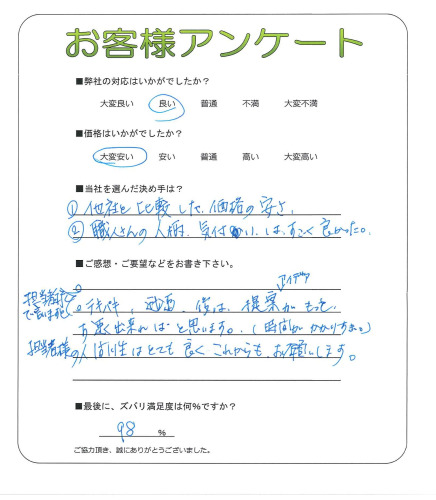 お客様アンケート
■弊社の対応はいかがでしたか？
大変良い 良い 普通 不満 大変不満
■価格はいかがでしたか？
大変安い 安い 普通 高い 大変高い
■当社を選んだ決め手は？
① 他社と比較した、価格の安さ、
② 職人さんの人柄、気付かい、は、すごく良かった。
■ご感想・ご要望などをお書き下さい。
アイデア
担当者様
計画、後は、提案がもっと
出来ればと思います。(時間がかかりすぎ。)
担当者様の人間性はとても良くこれからも、お願いします。
■最後に、ズバリ満足度は何％ですか？
98 %
ご協力頂き、誠にありがとうございました。